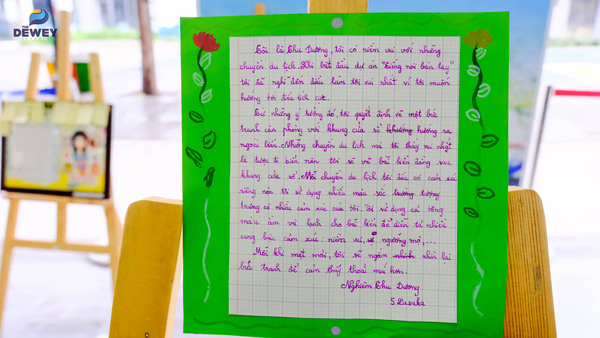 THE
DEWEY
Tôi là Chu Dương, tôi có niềm vui với những
chuyến du lịch. Khi bắt đầu dự án "Tiếng nói bàn tay"
tôi sẽ nghĩ đến điều làm tôi vui nhất vì tôi muốn
hướng tới điều tích cực.
Từ những ý tưởng đó, tôi quyết định vẽ một bức
tranh căn phòng với khung cửa sổ hướng ra
ngoài biển. Những chuyến du lịch mà tôi thấy vui nhất
là được đi biển nên tôi sẽ vẽ bãi biển đằng sau
khung cửa sổ. Mỗi chuyến du lịch tôi đều có cảm xúc
riêng nên tôi sử dụng nhiều màu sắc tượng
trưng có nhiều cảm xúc của tôi. Tôi sử dụng cả tông
màu ấm và lạnh cho bãi biển để diễn tả nhiều
cung bậc cảm xúc: niềm vui, ngưỡng mộ,...
Mỗi khi mệt mỏi, tôi sẽ ngắm nhìn lại
bức tranh để cảm thấy thoải mái hơn.
Nghiêm Chu Dương
5 Lusaka